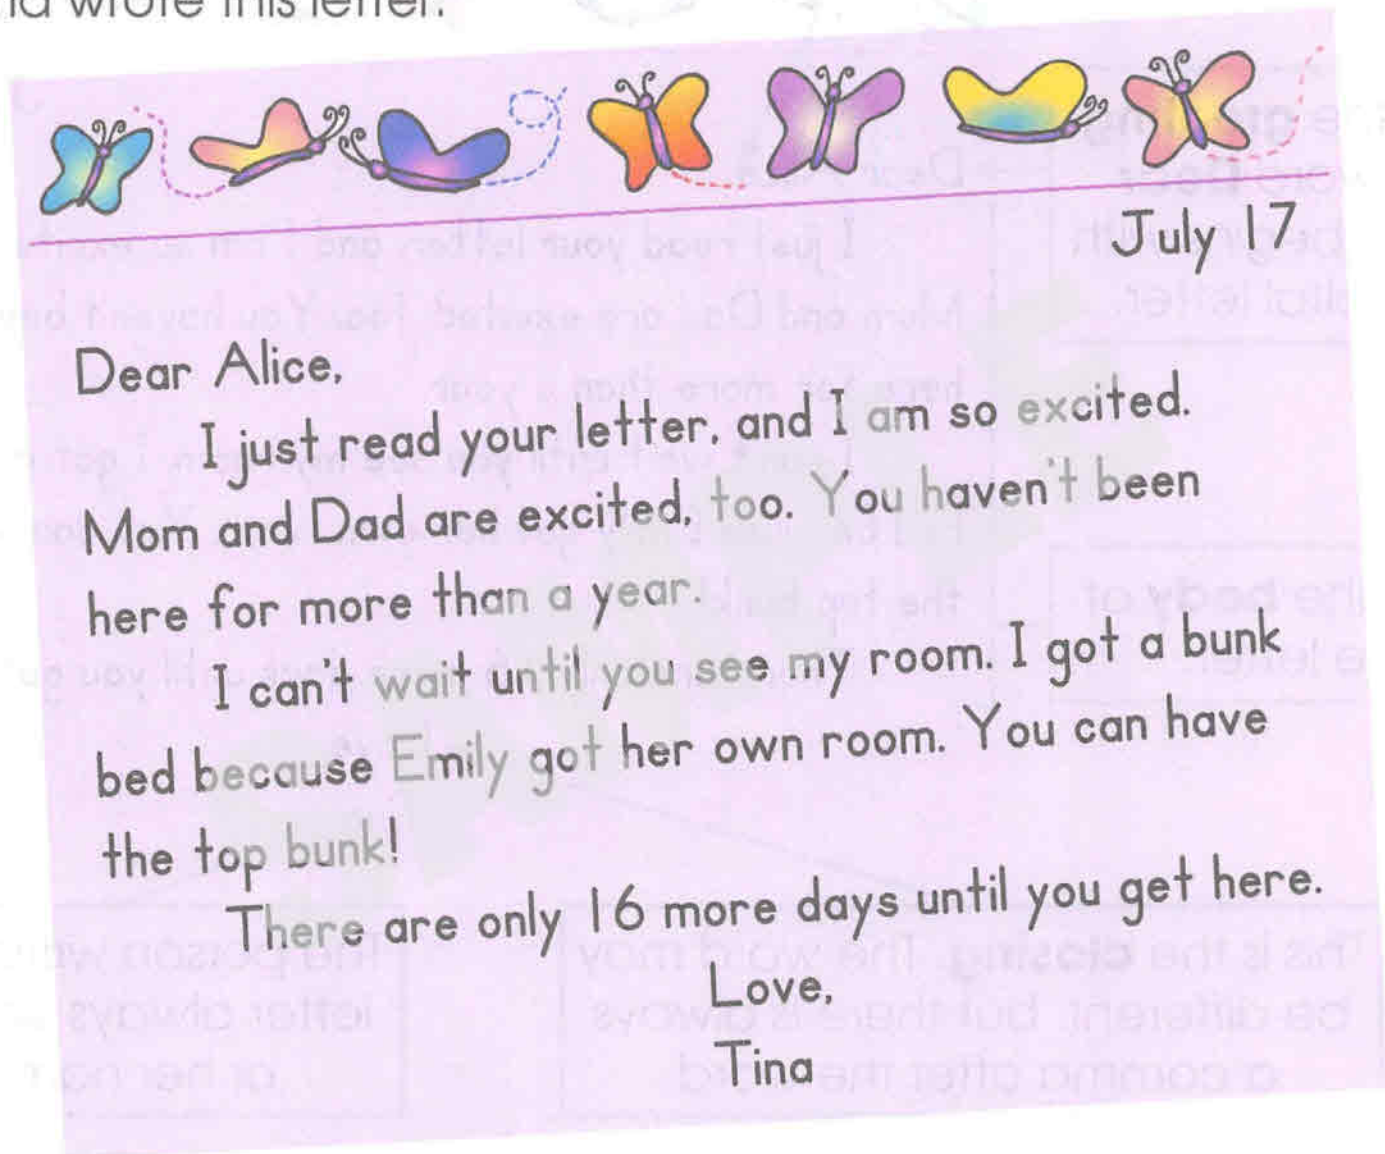 wrote this letter.
July 17
Dear Alice,
I just read your letter, and I am so excited.
Mom and Dad are excited, too. You haven't been
here for more than a year.
I can't wait until you see my room. I got a bunk
bed because Emily got her own room. You can have
the top bunk!
There are only 16 more days until you get here.
Love,
Tina